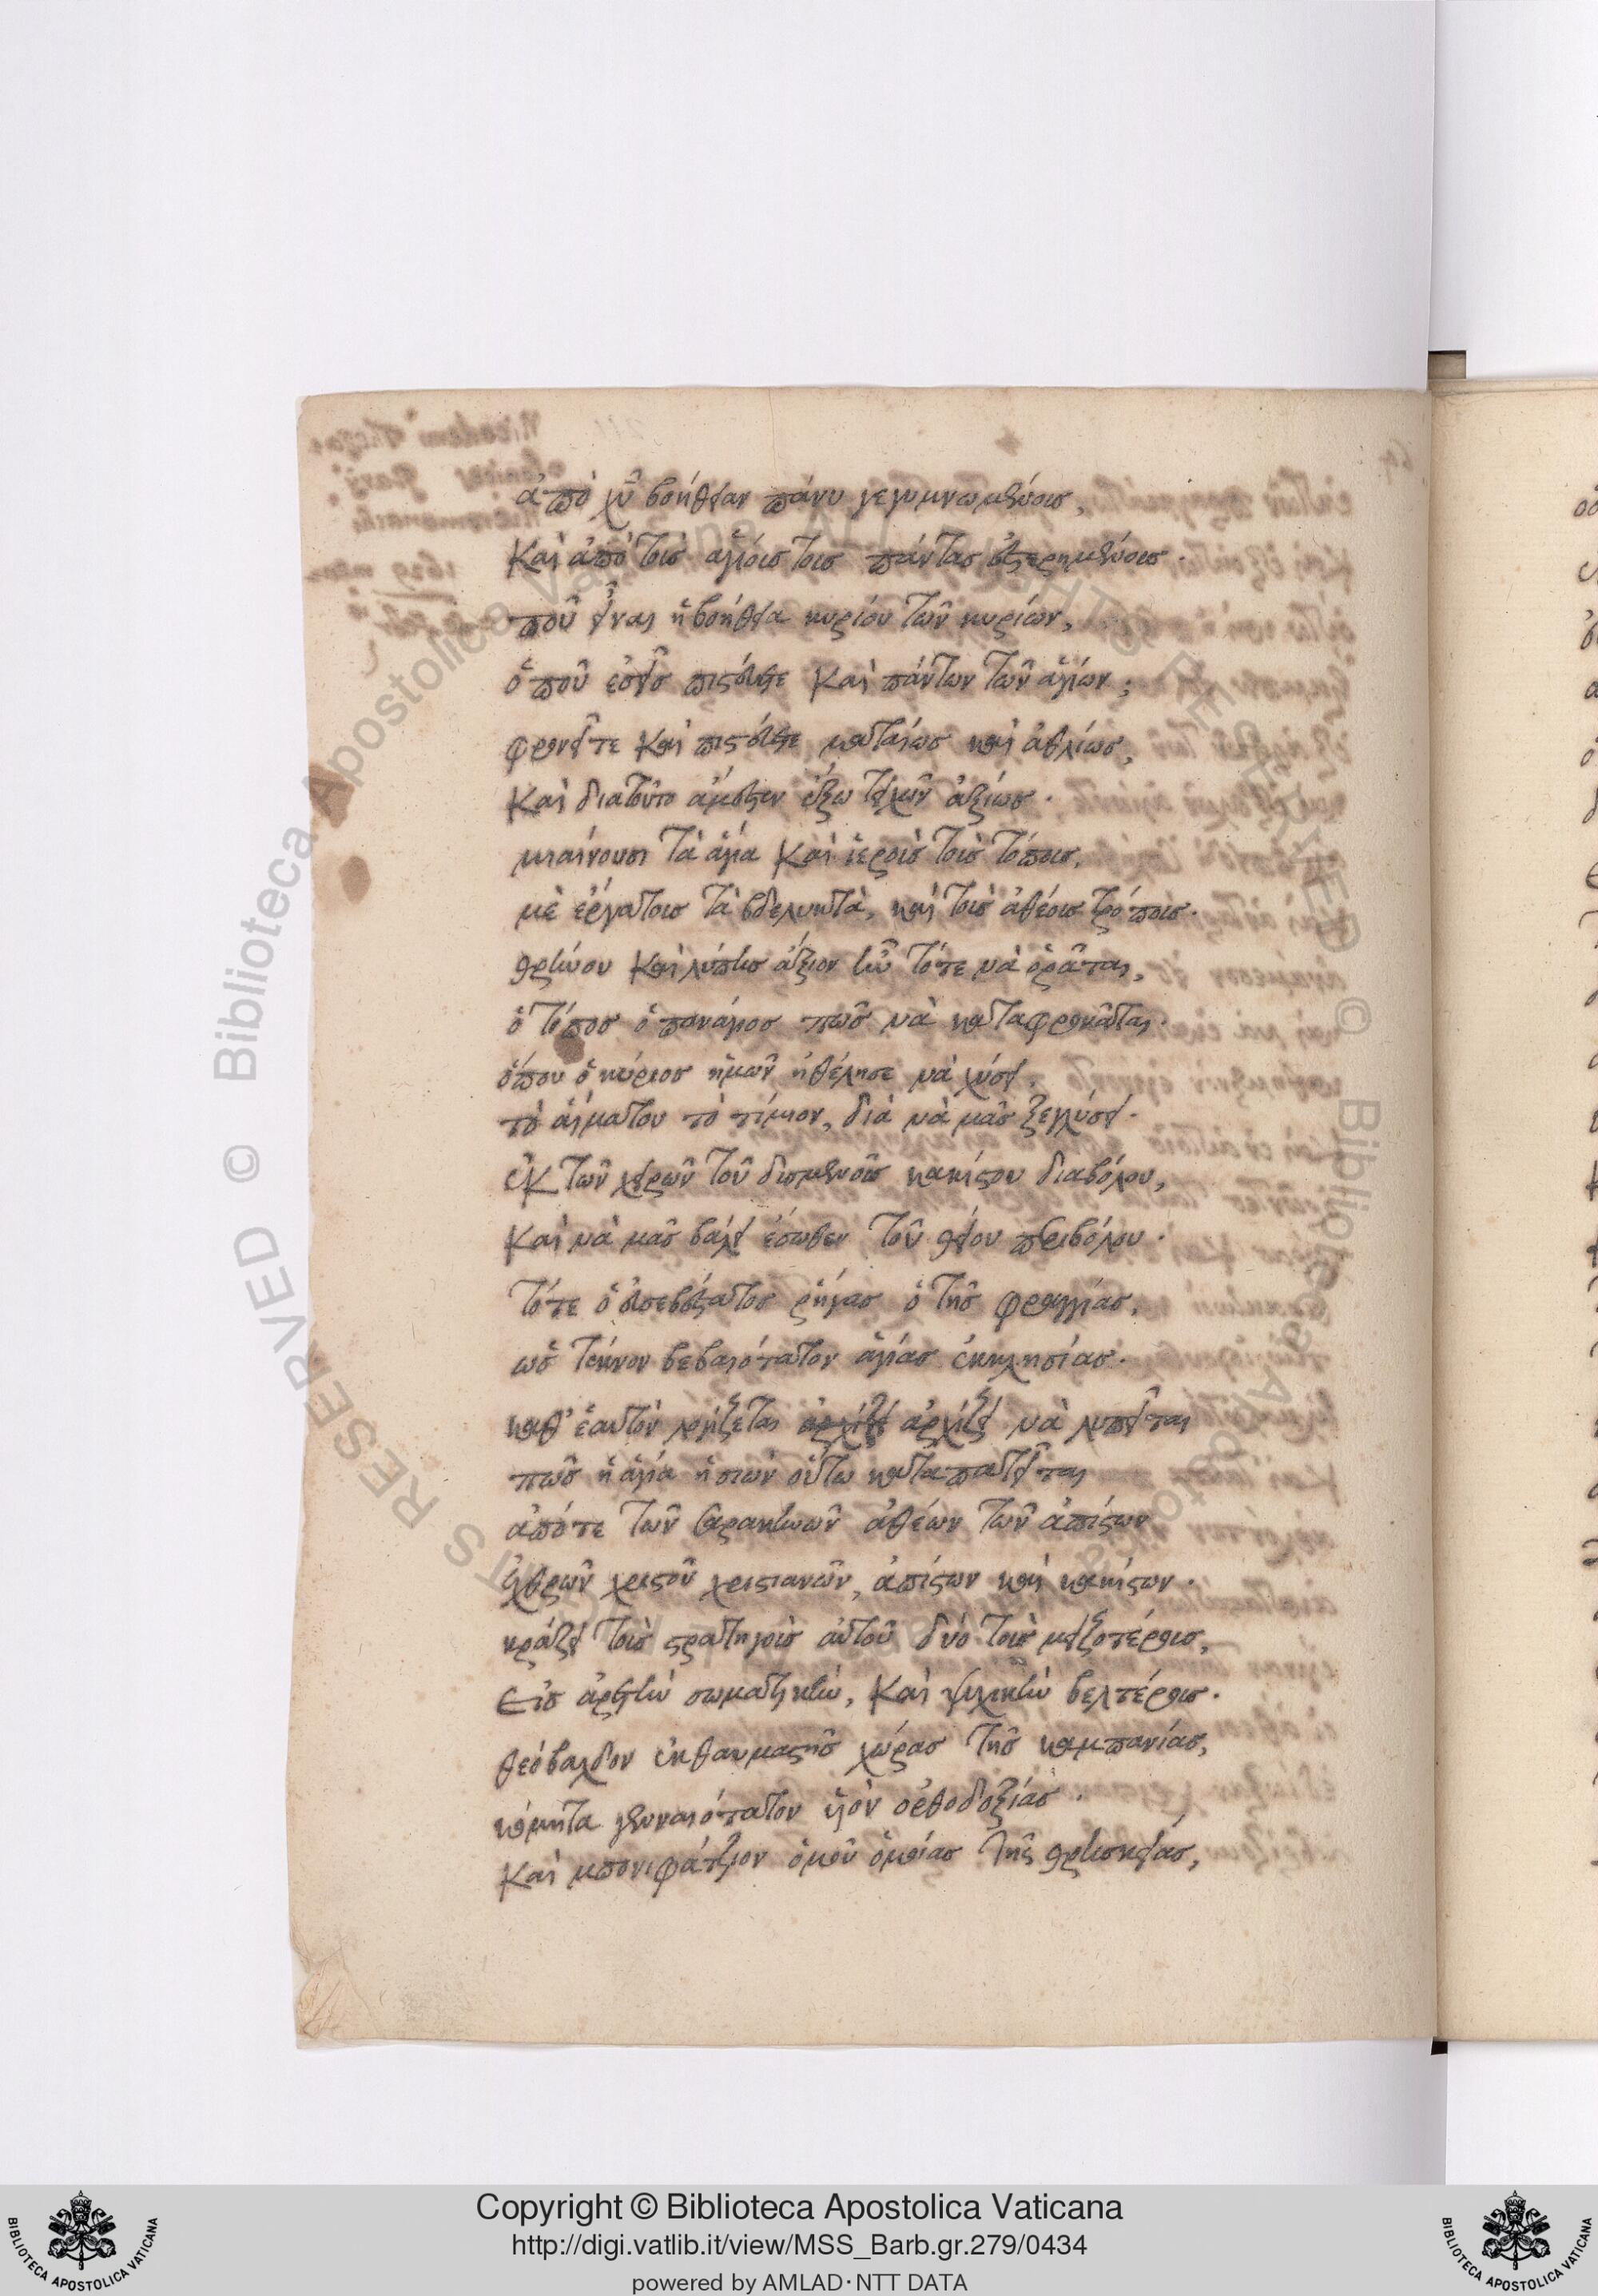 ἀπὸ χῦ βοήθειαν πάνυ γεγυμνωμένους,
Καὶ ἀπὸ τοὺς ἁγίους τους πάντας ἐξερημένους.
ποῦ εἶναι ἡ βοήθεια κυρίου τῶν κυρίων,
ὁποῦ ἐσεῖς πιστεύετε Καὶ πάντων τῶν ἁγίων;
φρονεῖτε Καὶ πιστεύετε ματαίως καὶ ἀθλίως,
Καὶ διατοῦτο ἔξω ἀξίως.
μιαίνουσι τὰ ἅγια Καὶ ἱεροὺς τοὺς τόπους,
μὲ ἔργατους τὰ βδελυκτὰ, καὶ τοὺς ἀθέους τρόπους.
θρήνου Καὶ λύπης ἄξιον ἦν τότε νὰ ὁρᾶται,
ὁ τόπος ὁ πανάγιος πῶς νὰ καταφρονᾶται.
ὅπου ὁ κύριος ἡμῶν ἠθέλησε νὰ χύσει,
τὸ αἷματου τὸ τίμιον, διὰ νὰ μᾶς ξεγλύσει.
ἐκ τῶν χειρῶν τοῦ δισμενοῦς κακίστου διαβόλου,
Καὶ νὰ μᾶς βάλει ἔσωθεν τοῦ θείου περιβόλου.
Τότε ὁ εὐσεβέστατος ῥήγας ὁ τῆς φραγγίας,
ὡς τέκνον βεβαιότατον ἁγίας ἐκκλησίας.
καθ' ἑαυτὸν λογίζεται ἀρχίζει ἀρχίζει νὰ λυπεῖται
πῶς ἡ ἁγία ἡ σιὼν οὕτω καταπατεῖται
ἀπότε τῶν σαρακινῶν ἀθέων τῶν ἀπίστων
ἐχθρῶν χριστοῦ χριστιανῶν, ἀπίστων καὶ κακίστων.
κράζει τοὺς στρατηγοὺς αὐτοῦ δύο τοὺς μειζοτέρους,
Εἰς ἀρετὴν σωματικὴν, Καὶ ψυχικὴν βελτέρους.
θεόβαλδον ἐκ θαυμαστῆς χώρας τῆς καμπανίας,
κόμητα γενναιότατον υἱὸν ὀρθοδοξίας.
Καὶ μπονιφάτζιον ὁμοῦ ὁμοίας τῆς θρησκείας,
Copyright © Biblioteca Apostolica Vaticana
http://digi.vatlib.it/view/MSS_Barb.gr.279/0434
powered by AMLAD·NTT DATA